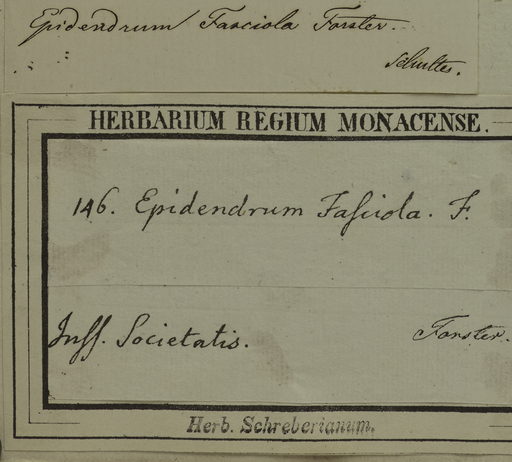 Epidendrum Fasciola Forster.
Schultes.
HERBARIUM REGIUM MONACENSE.
146. Epidendrum Fasciola. F.
Inss. Societatis. Forster.
Herb. Schreberianum.